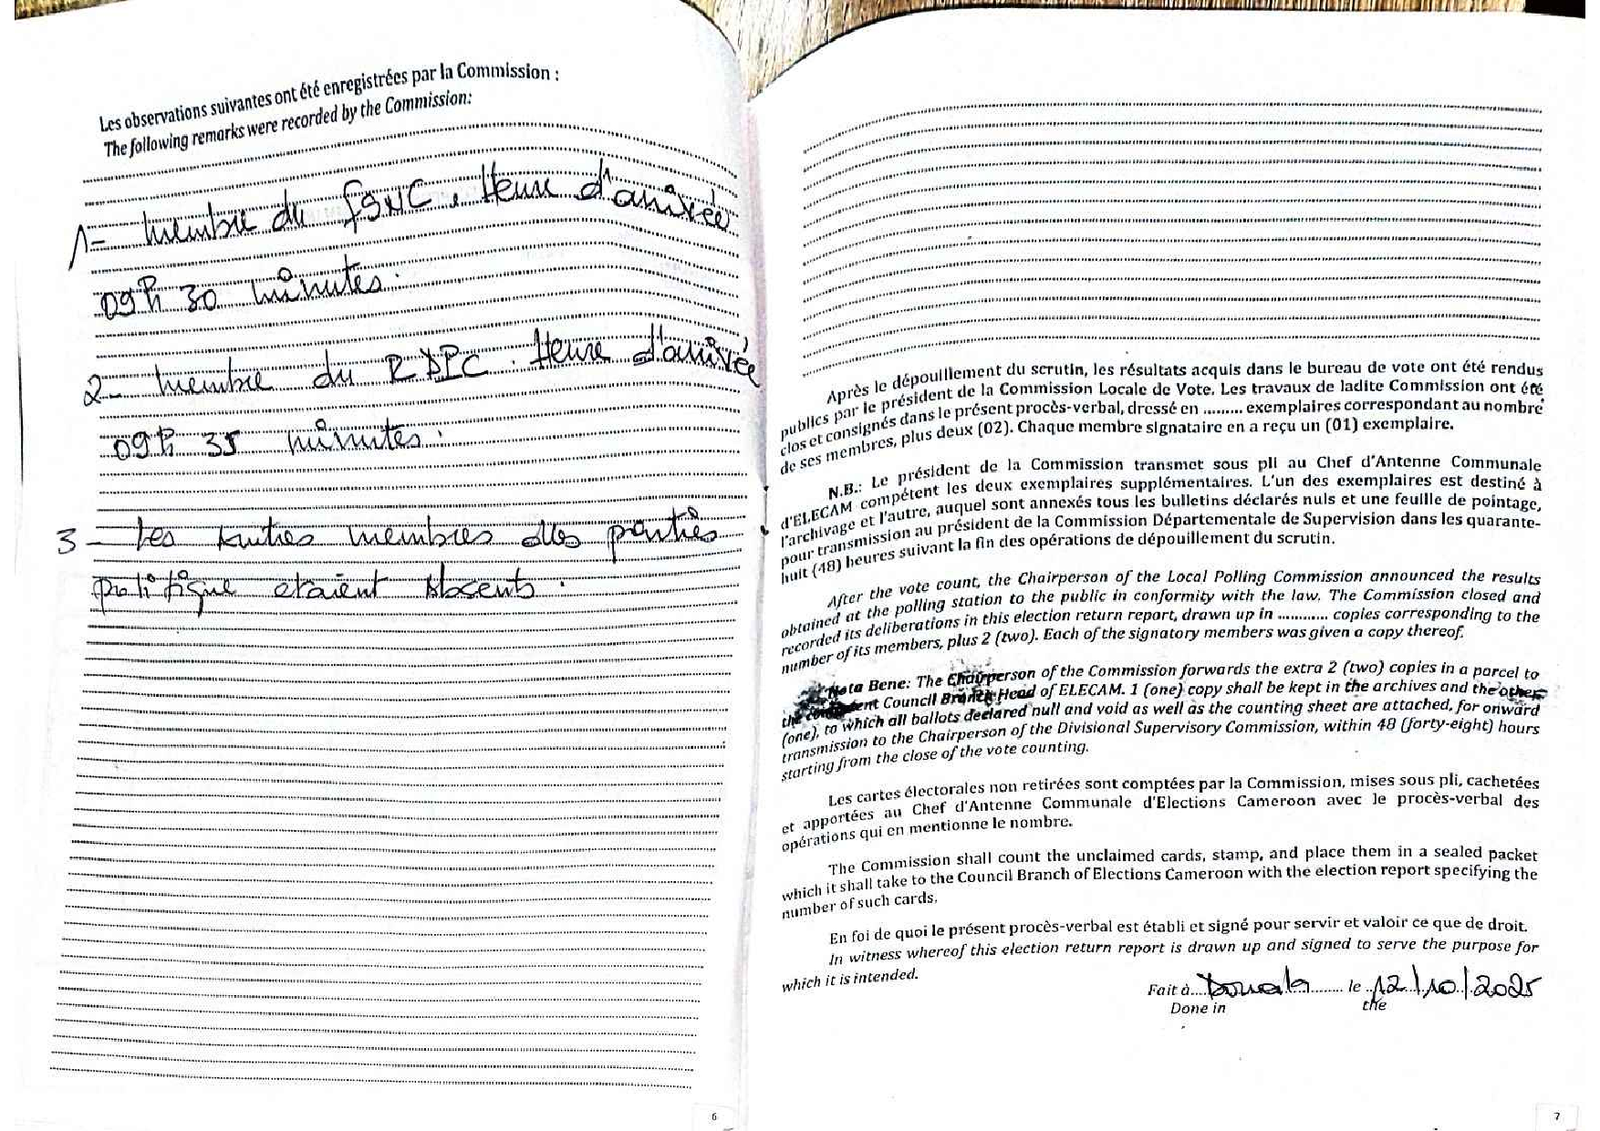 Les observations suivantes ont été enregistrées par la Commission :
The following remarks were recorded by the Commission:
1- membre du FSNC. Heure d'arrivée
09h 30 minutes.
2- membre du RDPC. Heure d'arrivée
09h 35 minutes.
3- Les autres membres des partis
politique etaient absents.
6
Après le dépouillement du scrutin, les résultats acquis dans le bureau de vote ont été rendus
publics par le président de la Commission Locale de Vote. Les travaux de ladite Commission ont été
clos et consignés dans le présent procès-verbal, dressé en ......... exemplaires correspondant au nombre
de ses membres, plus deux (02). Chaque membre signataire en a reçu un (01) exemplaire.
N.B.: Le président de la Commission transmet sous pli au Chef d'Antenne Communale
d'ELECAM compétent les deux exemplaires supplémentaires. L'un des exemplaires est destiné à
l'archivage et l'autre, auquel sont annexés tous les bulletins déclarés nuls et une feuille de pointage,
pour transmission au président de la Commission Départementale de Supervision dans les quarante-
huit (48) heures suivant la fin des opérations de dépouillement du scrutin.
After the vote count, the Chairperson of the Local Polling Commission announced the results
obtained at the polling station to the public in conformity with the law. The Commission closed and
recorded its deliberations in this election return report, drawn up in ............ copies corresponding to the
number of its members, plus 2 (two). Each of the signatory members was given a copy thereof.
Nota Bene: The Chairperson of the Commission forwards the extra 2 (two) copies in a parcel to
the Council Branch Head of ELECAM. 1 (one) copy shall be kept in the archives and the other
(one), to which all ballots declared null and void as well as the counting sheet are attached, for onward
transmission to the Chairperson of the Divisional Supervisory Commission, within 48 (forty-eight) hours
starting from the close of the vote counting.
Les cartes électorales non retirées sont comptées par la Commission, mises sous pli, cachetées
et apportées au Chef d'Antenne Communale d'Elections Cameroon avec le procès-verbal des
opérations qui en mentionne le nombre.
The Commission shall count the unclaimed cards, stamp, and place them in a sealed packet
which it shall take to the Council Branch of Elections Cameroon with the election report specifying the
number of such cards.
En foi de quoi le présent procès-verbal est établi et signé pour servir et valoir ce que de droit.
In witness whereof this election return report is drawn up and signed to serve the purpose for
which it is intended.
Fait à Douala le 12/10/2025
Done in the
7